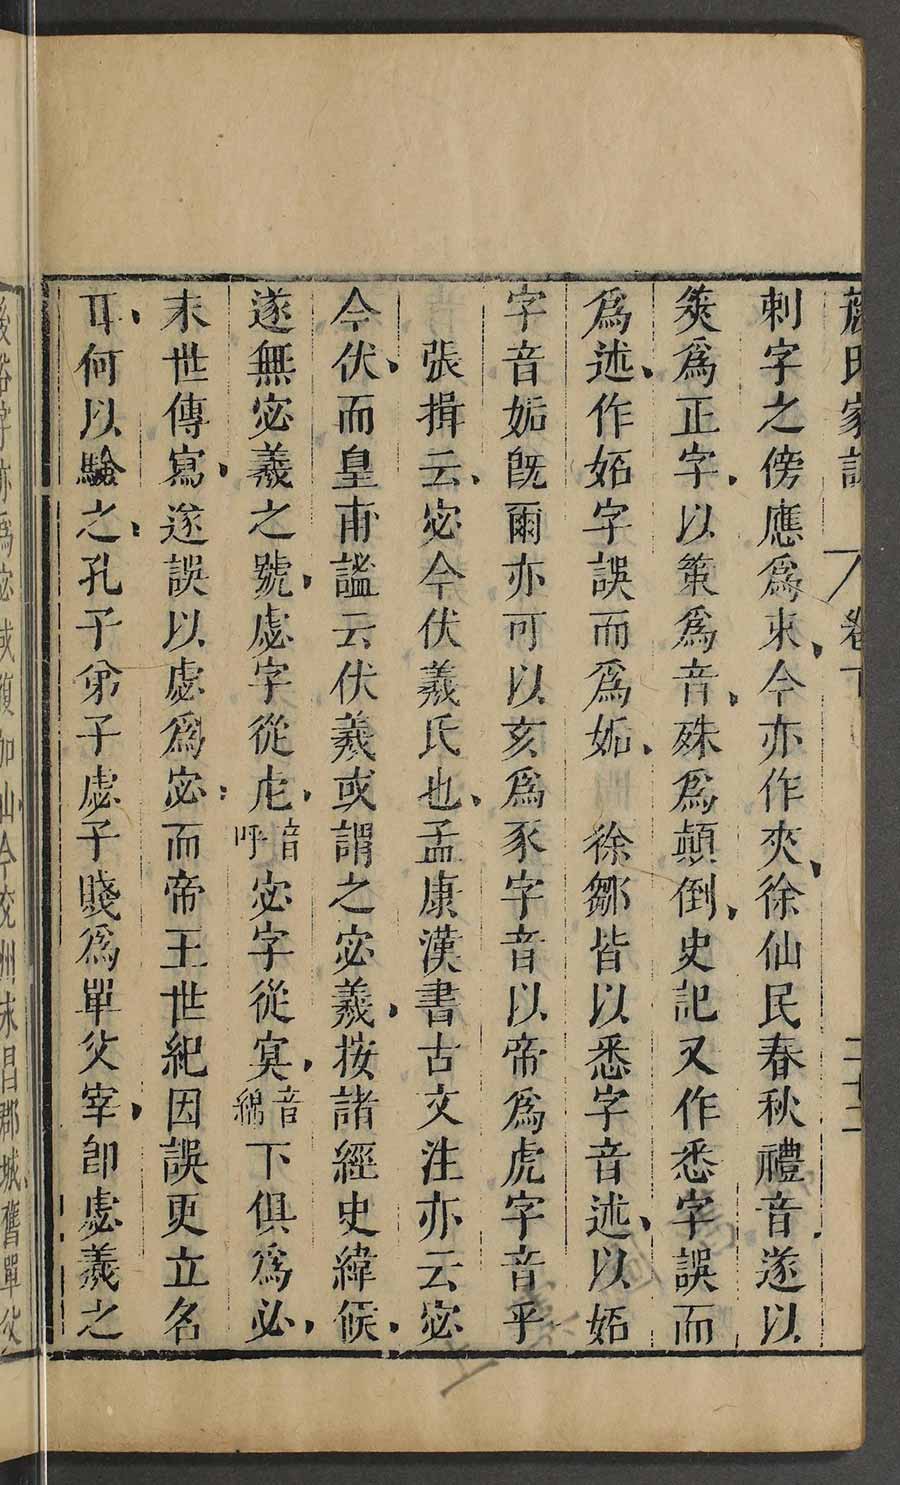 顏氏家訓 卷下 二十二
刺字之傍應爲朿今亦作夾徐仙民春秋禮音遂以
筴爲正字以策爲音殊爲顛倒史記又作悉字誤而
爲述作妬字誤而爲姤 徐鄒皆以悉字音述以妬
字音姤旣爾亦可以亥爲豕字音以帝爲虎字音乎
張揖云宓今伏羲氏也孟康漢書古文注亦云宓
今伏而皇甫謐云伏羲或謂之宓羲按諸經史緯候
遂無宓羲之號虙字從虍音呼宓字從㝠音綿下俱爲必
末世傳寫遂誤以虙爲宓而帝王世紀因誤更立名
耳何以驗之孔子弟子虙子賤爲單父宰卽虙羲之
後俗字亦爲宓或復加山今兗州永昌郡城舊單父